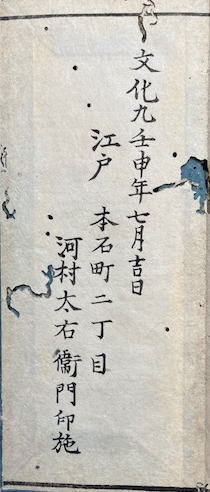 文化九壬申年七月吉日
江戸 本石町二丁目
河村太右衛門印施